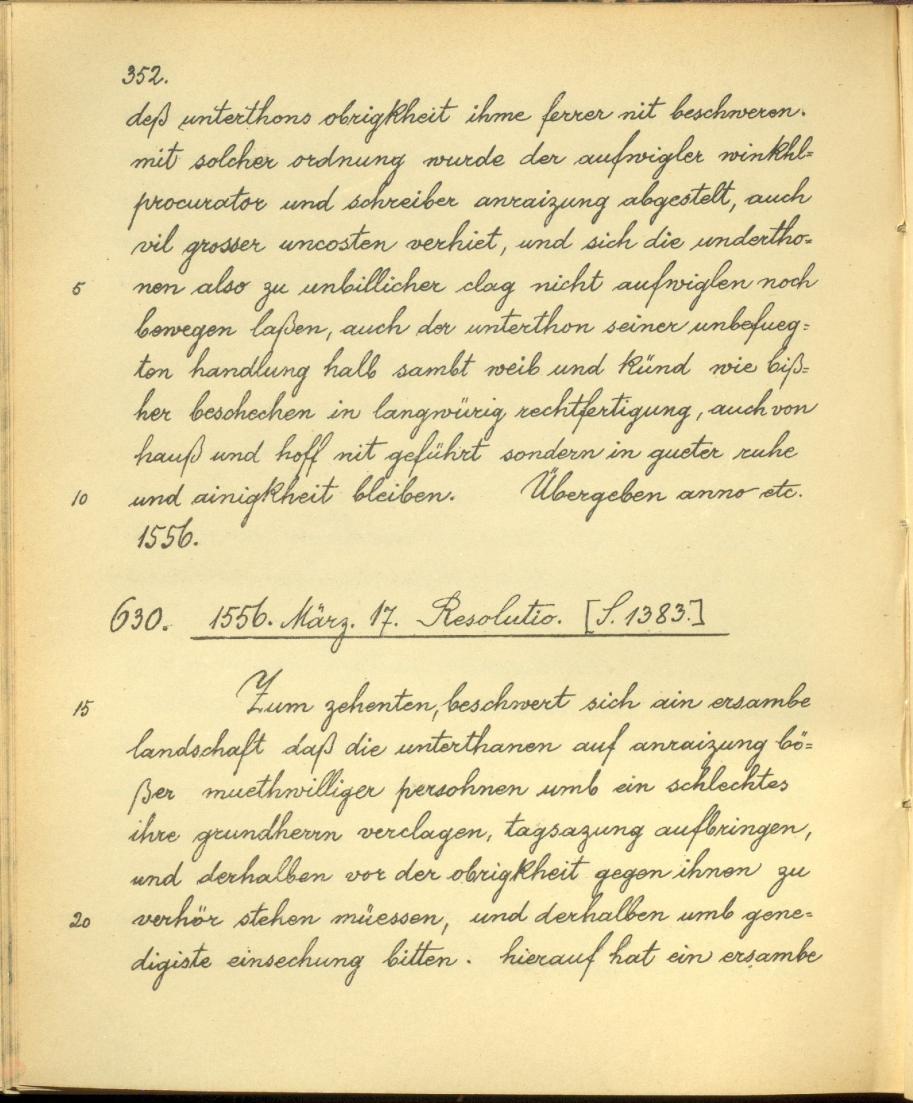 352.
deß unterthons obrigkheit ihme ferrer nit beschweren.
mit solcher ordnung wurde der aufwigler winkhl=
procurator und schreiber anraizung abgestelt, auch
vil grosser uncosten verhiet, und sich die undertho=
5 nen also zu unbillicher clag nicht aufwiglen noch
bewegen laßen, auch der unterthon seiner unbefueg=
ten handlung halb sambt weib und künd wie biß=
her beschechen in langwürig rechtfertigung, auch von
hauß und hoff nit geführt sondern in gueter ruhe
10 und ainigkheit bleiben. Übergeben anno etc.
1556.
630. 1556. März. 17. Resolutio. [S. 1383.]
15 Zum zehenten, beschwert sich ain ersambe
landschaft daß die unterthanen auf anraizung bö=
ßer muethwilliger persohnen umb ein schlechtes
ihre grundherrn verclagen, tagsazung aufbringen,
und derhalben vor der obrigkheit gegen ihnen zu
20 verhör stehen müessen, und derhalben umb gene=
digiste einsechung bitten. hierauf hat ein ersambe